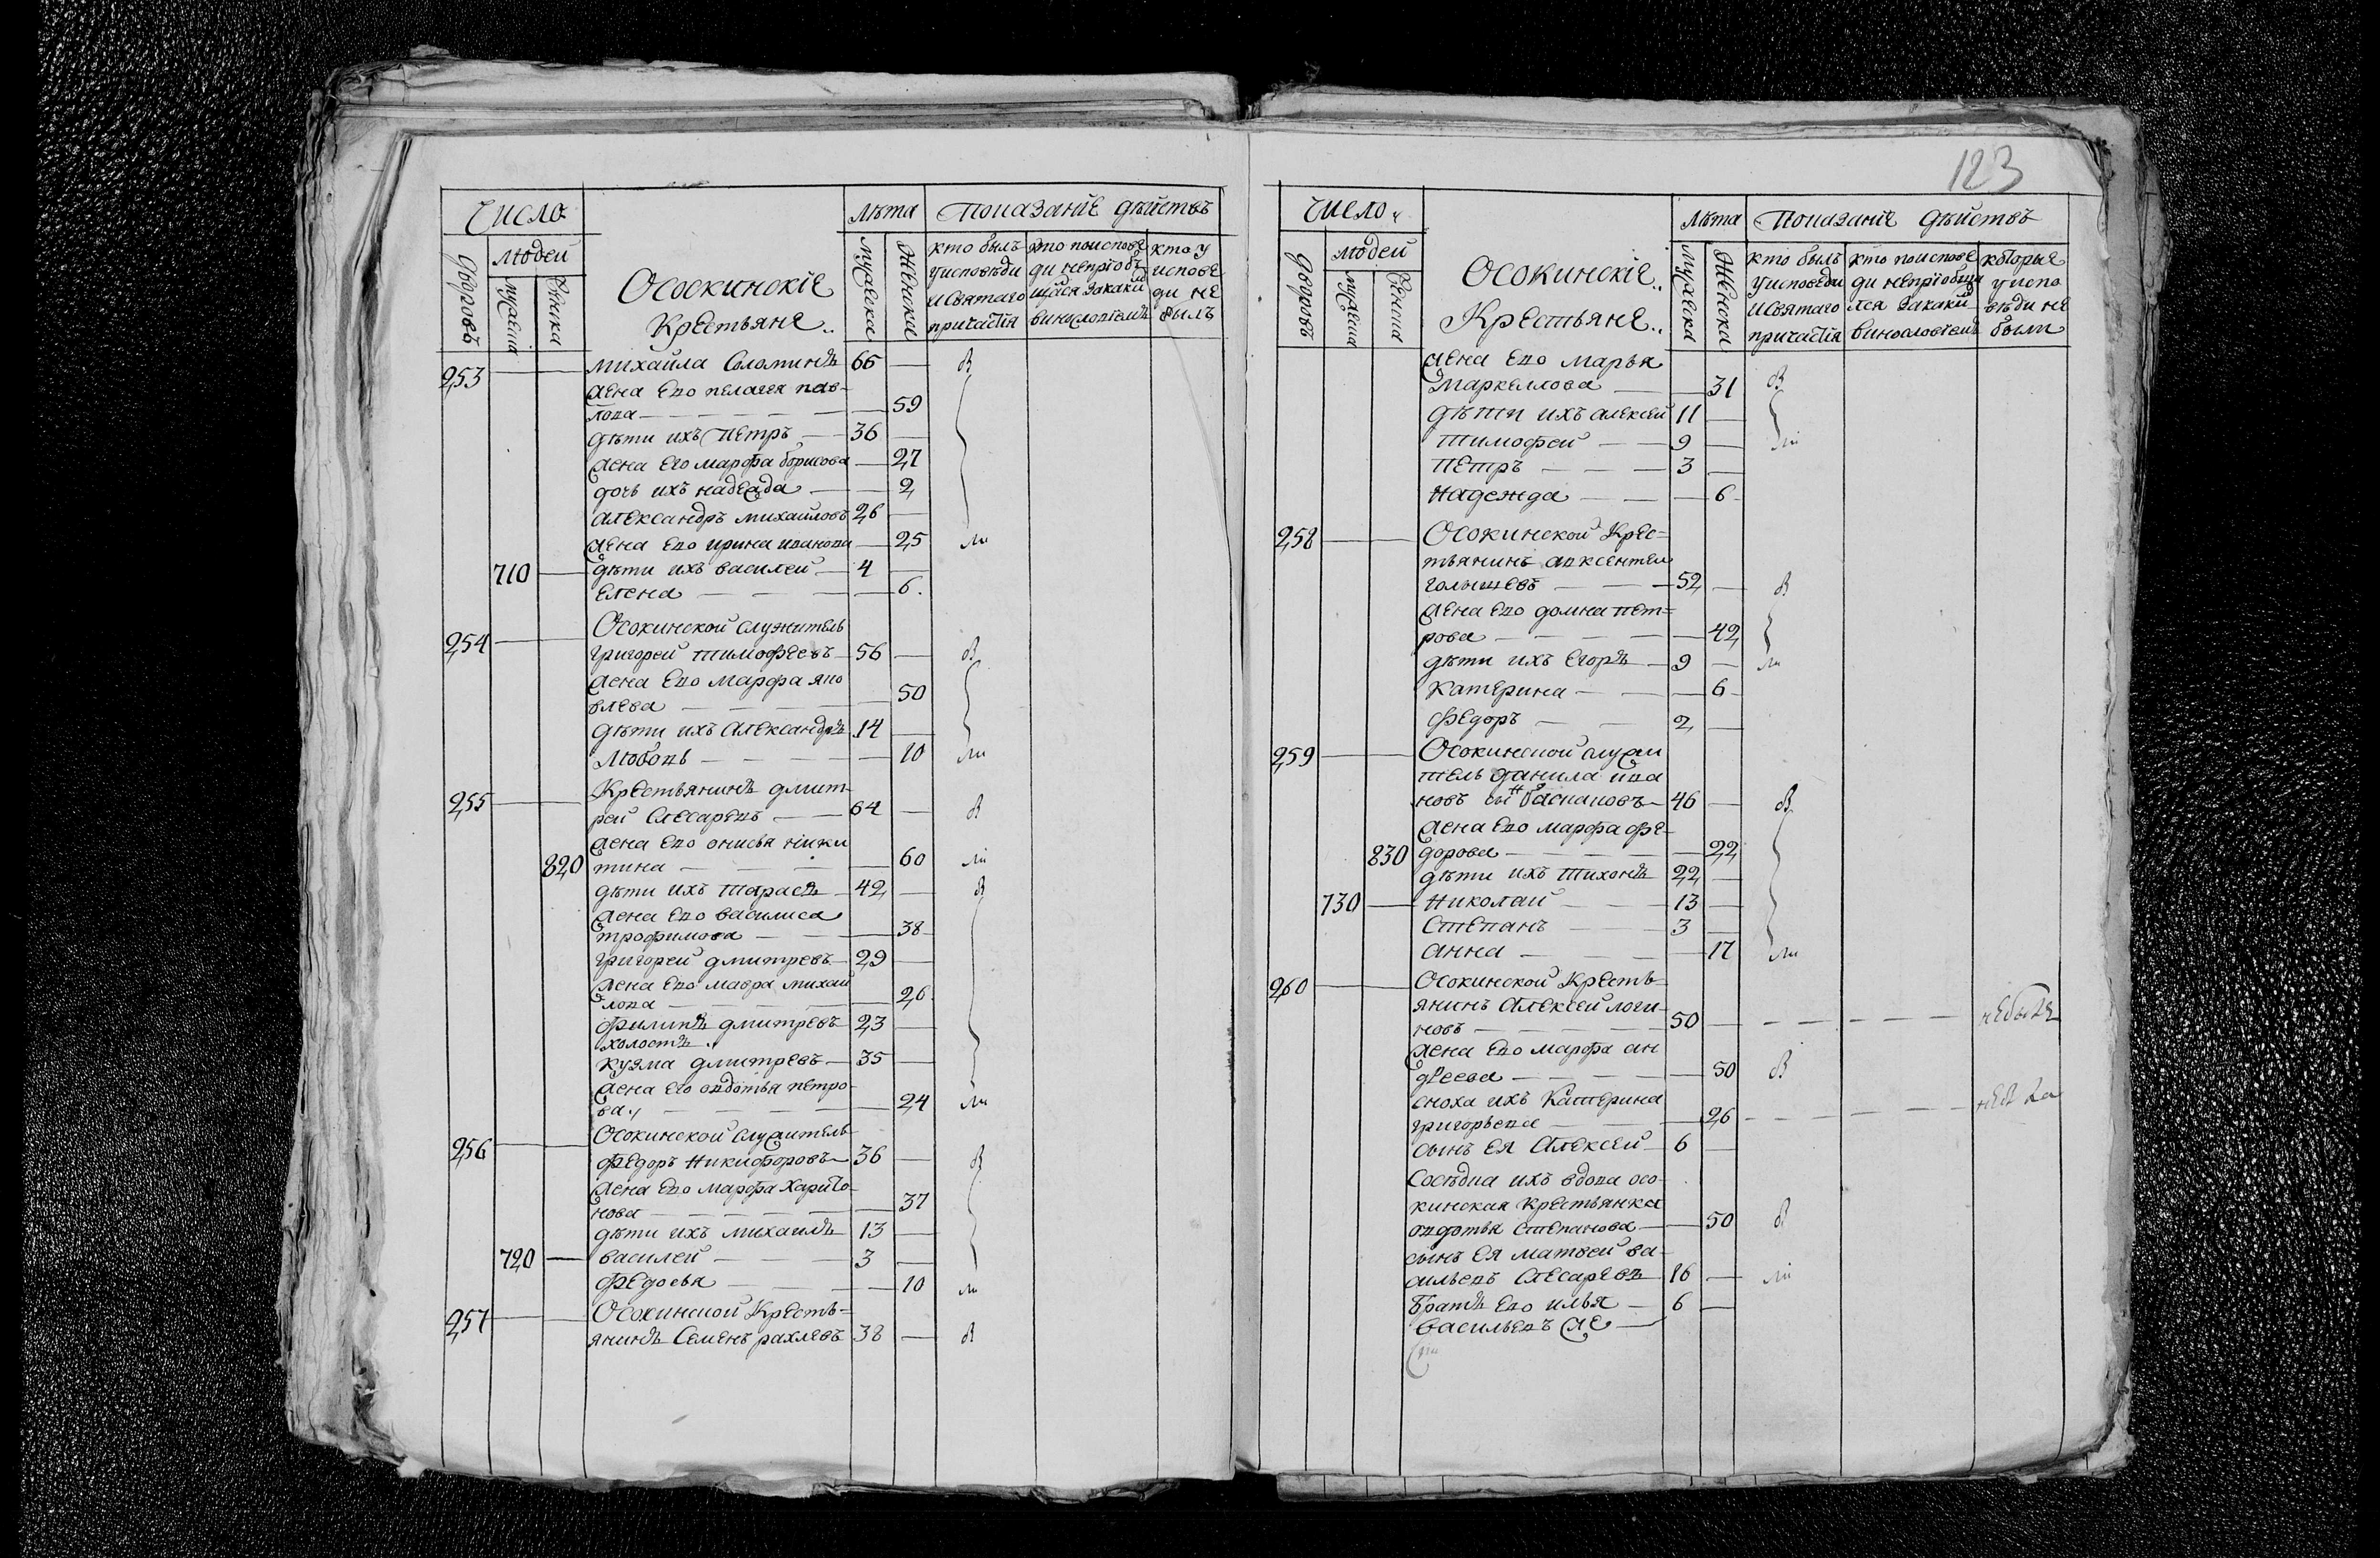 Число
Лѣта Показание дѣйствъ
Дворовъ
людей
мужеска
женска
Осокинскіе
Крестьяне..
мужеска
женска
кто былъ
у исповѣди
и святаго
причастїя
кто поиспове
ди непрїоб
щася закаки
винословїемъ
кто у
испове
ди не
былъ
253 — — михайла Соломинъ 65 — в
жена ево пелагея пав-
лова — — — — 59
дѣти ихъ петръ — 36 —
жена его марфа борисова — 27
дочь ихъ надежда — — 2
александръ михаиловъ 26 —
жена ево ирина иванова — 25 ли
710 — дѣти ихъ василей — 4 —
елена — — — — 6.
Осокинской служитель
254 — григорей тимофеевъ — 56 — в
жена ево марфа яко
влева — — — — 50
дѣти ихъ александръ 14 —
любовь — — — — 10 ли
Крестьянинъ дмит-
255 — рей Слесаревъ — 64 — в
жена ево онисья ники
820 тина — — — 60 ли
дѣти ихъ тарасъ — 42 — в
жена ево василиса
трофимова — — — 38
григорей дмитревъ — 29 —
жена ево мавра михай
лова — — — — 26
филипъ дмитревъ 23 —
холостъ.
кузма дмитревъ — 35 —
жена его овдотья петро-
ва — — — — 24 ли
Осокинской служитель
256 — федоръ никифоровъ — 36 — в
жена ево марфа харито-
нова — — — — 37
дѣти ихъ михаилъ 13 —
720 — василей — — 3 —
федосья — — — 10 ли
Осокинской Кресть-
257 — янинъ Семенъ рахлевъ 38 — в
123
Число
Лѣта Показание дѣйствъ
Дворовъ
людей
мужеска
женска
Осокинскіе..
Крестьяне..
мужеска
женска
кто былъ
у исповеди
и святаго
причастїя
кто поиспове
ди непрїобща
лся закаки
винословїемъ
которые
у испо
вѣди не
были
жена ево марья
маркеллова — — 31 в
дѣти ихъ алексей 11 —
тимофей — — 9 — ли
петръ — — — 3 —
надежда — — — 6
258 — — Осокинской Крес-
тьянинъ авксентеи
голышевъ — — 52 — в
жена ево домна пет-
рова — — — — 42
дѣти ихъ егоръ — 9 — ли
катерина — — — 6
федоръ — — 2 —
259 — — Осокинской служи
тель данила ива
новъ — 46 — в
жена ево марфа фе-
830 дорова — — — — 22
дѣти ихъ тихонъ 22 —
730 — николаи — — 13 —
степанъ — — 3 —
анна — — — — 17 ли
260 — — Осокинской Кресть-
янинъ алексеи логи-
новъ — — — 50 — — — — — — небыле
жена ево марфа ан
дреева — — — — 50 в
сноха ихъ катерина
григорьева — — — 26 — — — — — —
сынъ ея алексеи — 6 —
Соседка ихъ вдова осо-
кинская крестьянка
овдотья степанова — — 50 в
сынъ ея матвеи ва-
сильевъ слесаревъ 16 — ли
братъ ево илья — 6 —
васильевъ же —